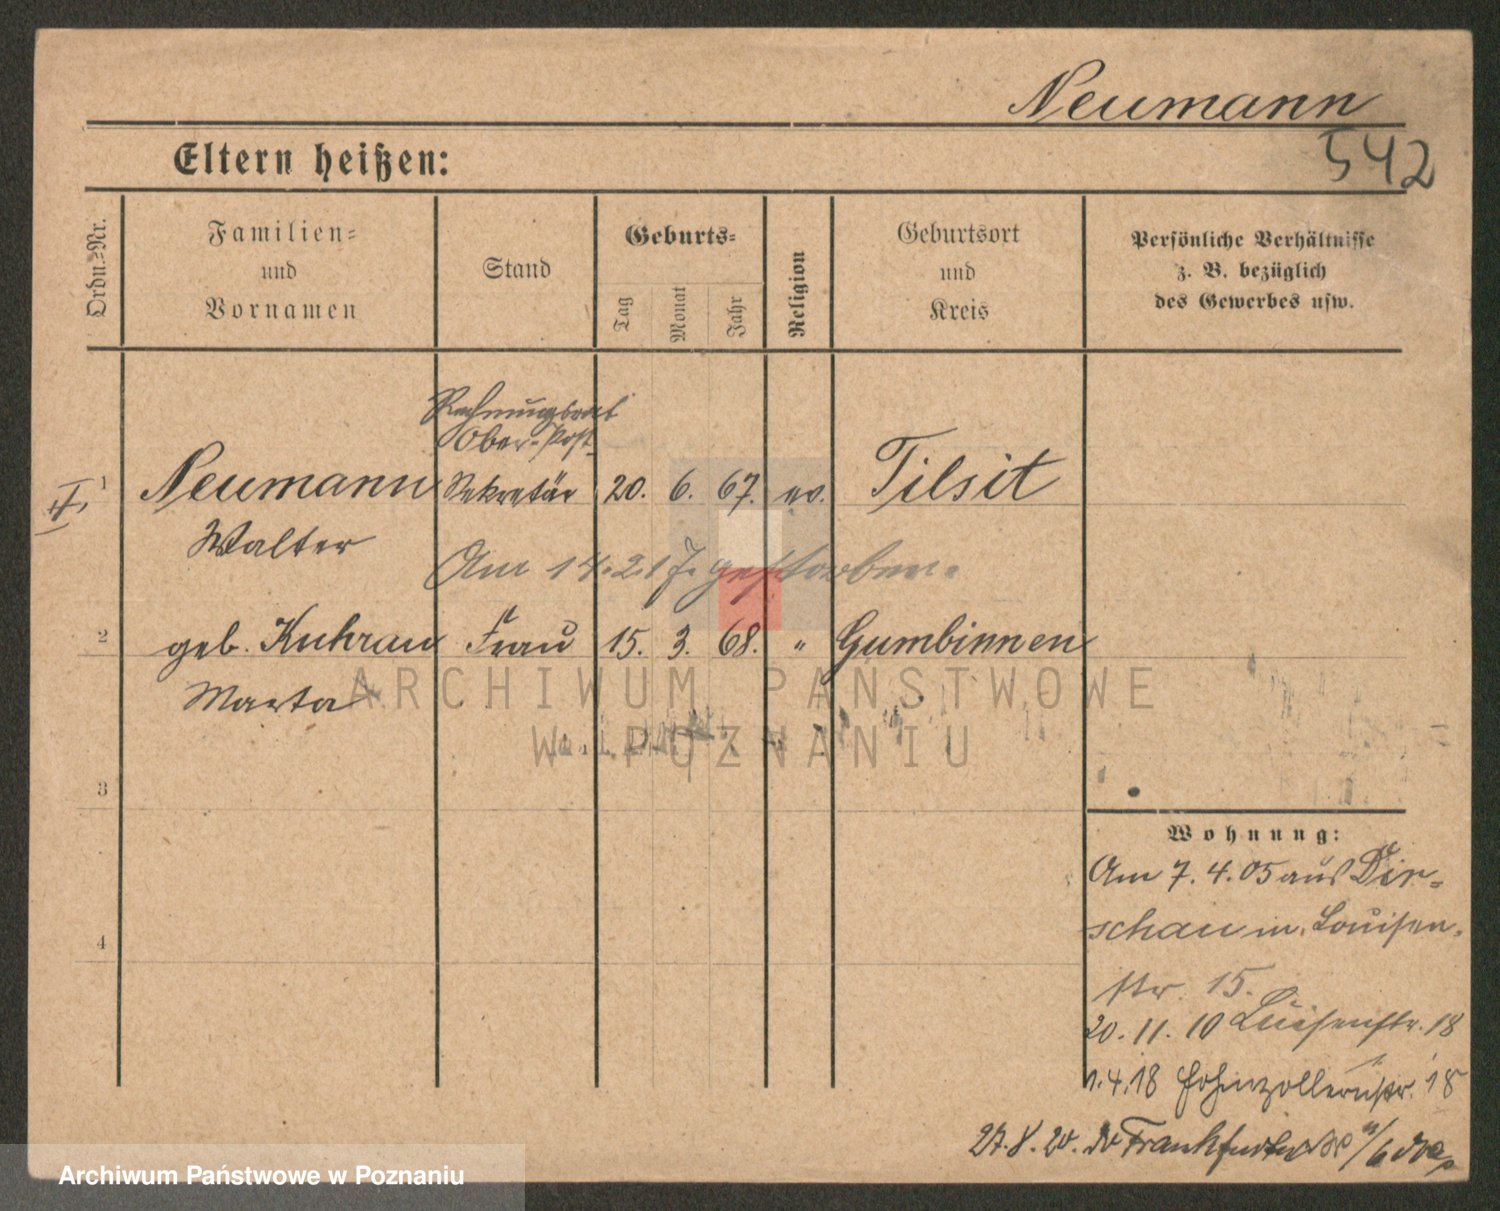 Neumann
542
Eltern heißen:
Ordn.-Nr.
Familien-
und
Vornamen
Stand
Geburts-
Tag
Monat
Jahr
Religion
Geburtsort
und
Kreis
Persönliche Verhältnisse
z. B. bezüglich
des Gewerbes usw.
Rechnungsrat
Ober-Post-
1 Neumann Sekretär 20. 6. 67. ev. Tilsit
Walter
Am gestorben.
2 geb. Kuhrau Frau 15. 3. 68. " Gumbinnen
Marta
3
4
Wohnung:
Am 7. 4. 05 aus Dir-
schau in Louisen-
str. 15.
20. 11. 10 Luisenstr. 18
1.4.18 Hohenzollernstr. 18
27. 8. 20. Frankfurt
ARCHIWUM PAŃSTWOWE
W POZNANIU
Archiwum Państwowe w Poznaniu